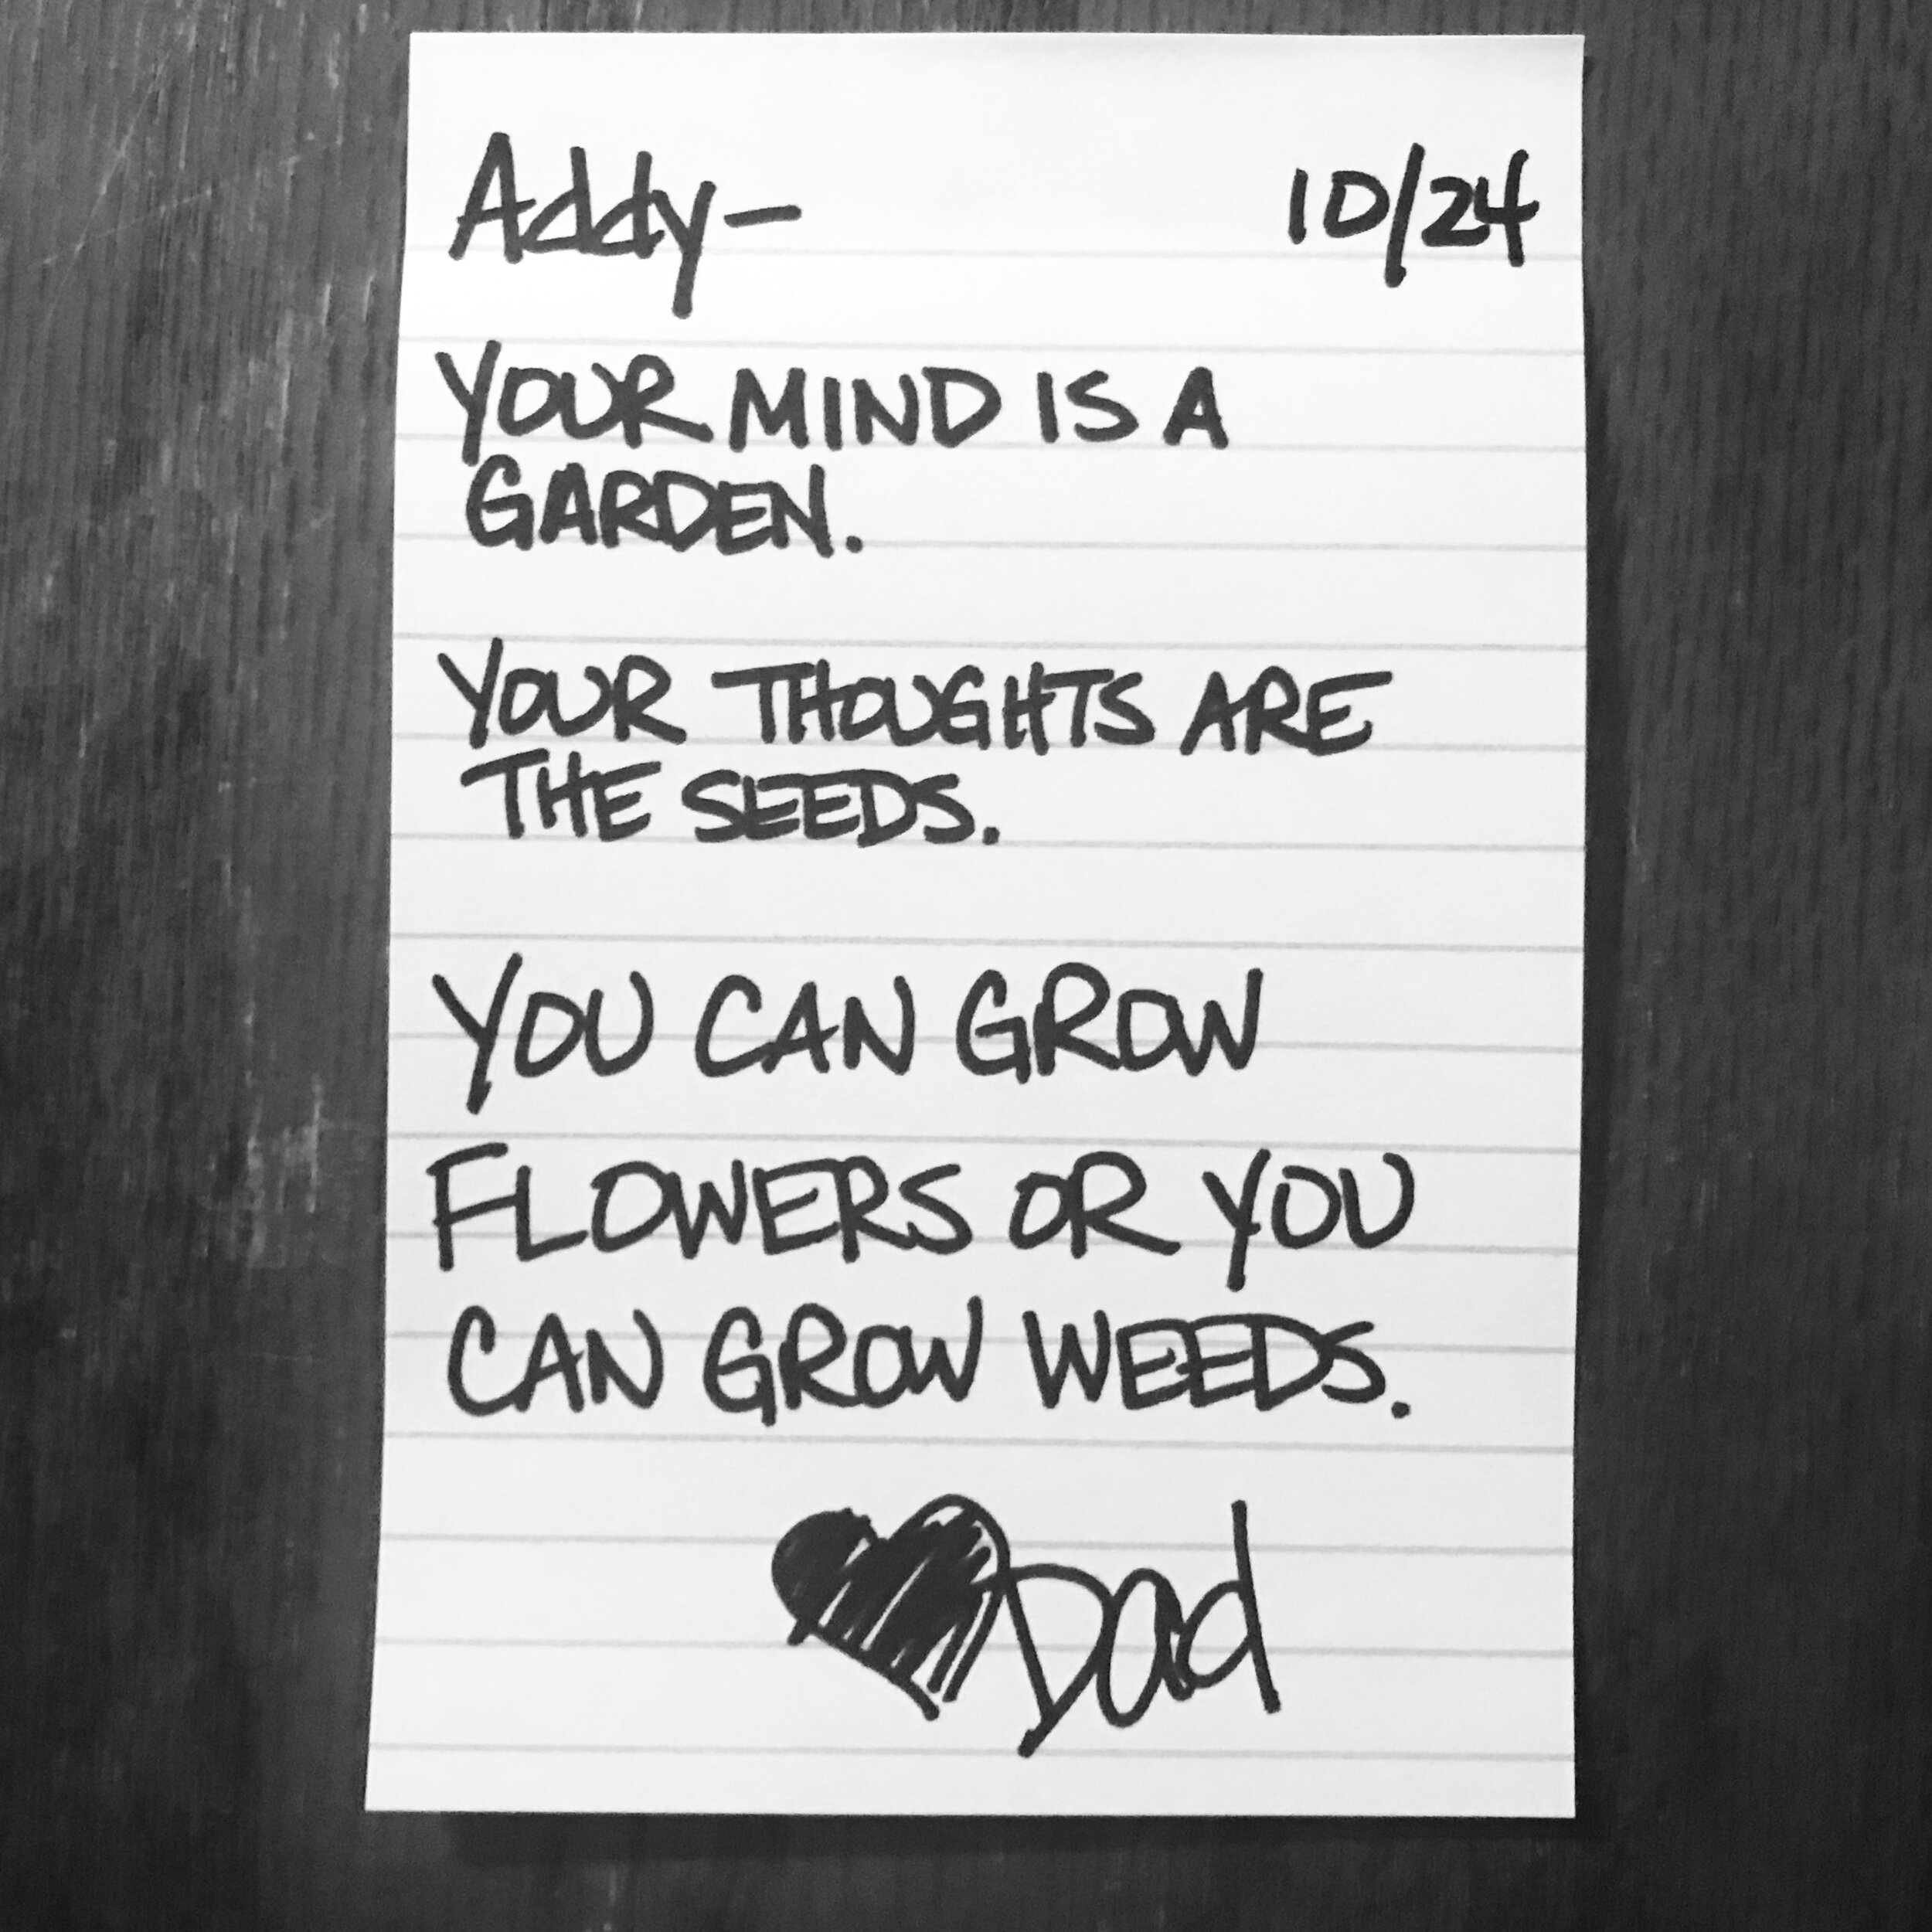 Addy- 10/24
YOUR MIND IS A
GARDEN.
YOUR THOUGHTS ARE
THE SEEDS.
YOU CAN GROW
FLOWERS OR YOU
CAN GROW WEEDS.
Dad